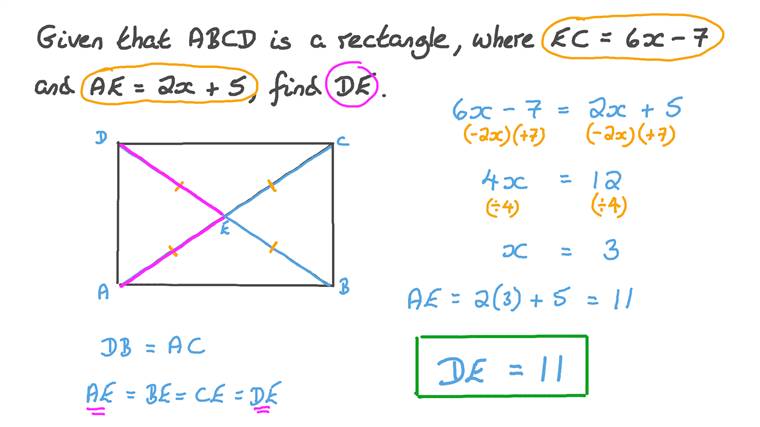 Given that ABCD is a rectangle, where EC = 6x - 7
and AE = 2x + 5, find DE.
6x - 7 = 2x + 5
(-2x)(+7) (-2x)(+7)
4x = 12
(÷4) (÷4)
x = 3
AE = 2(3) + 5 = 11
DE = 11
D
C
E
A
B
DB = AC
AE = BE = CE = DE